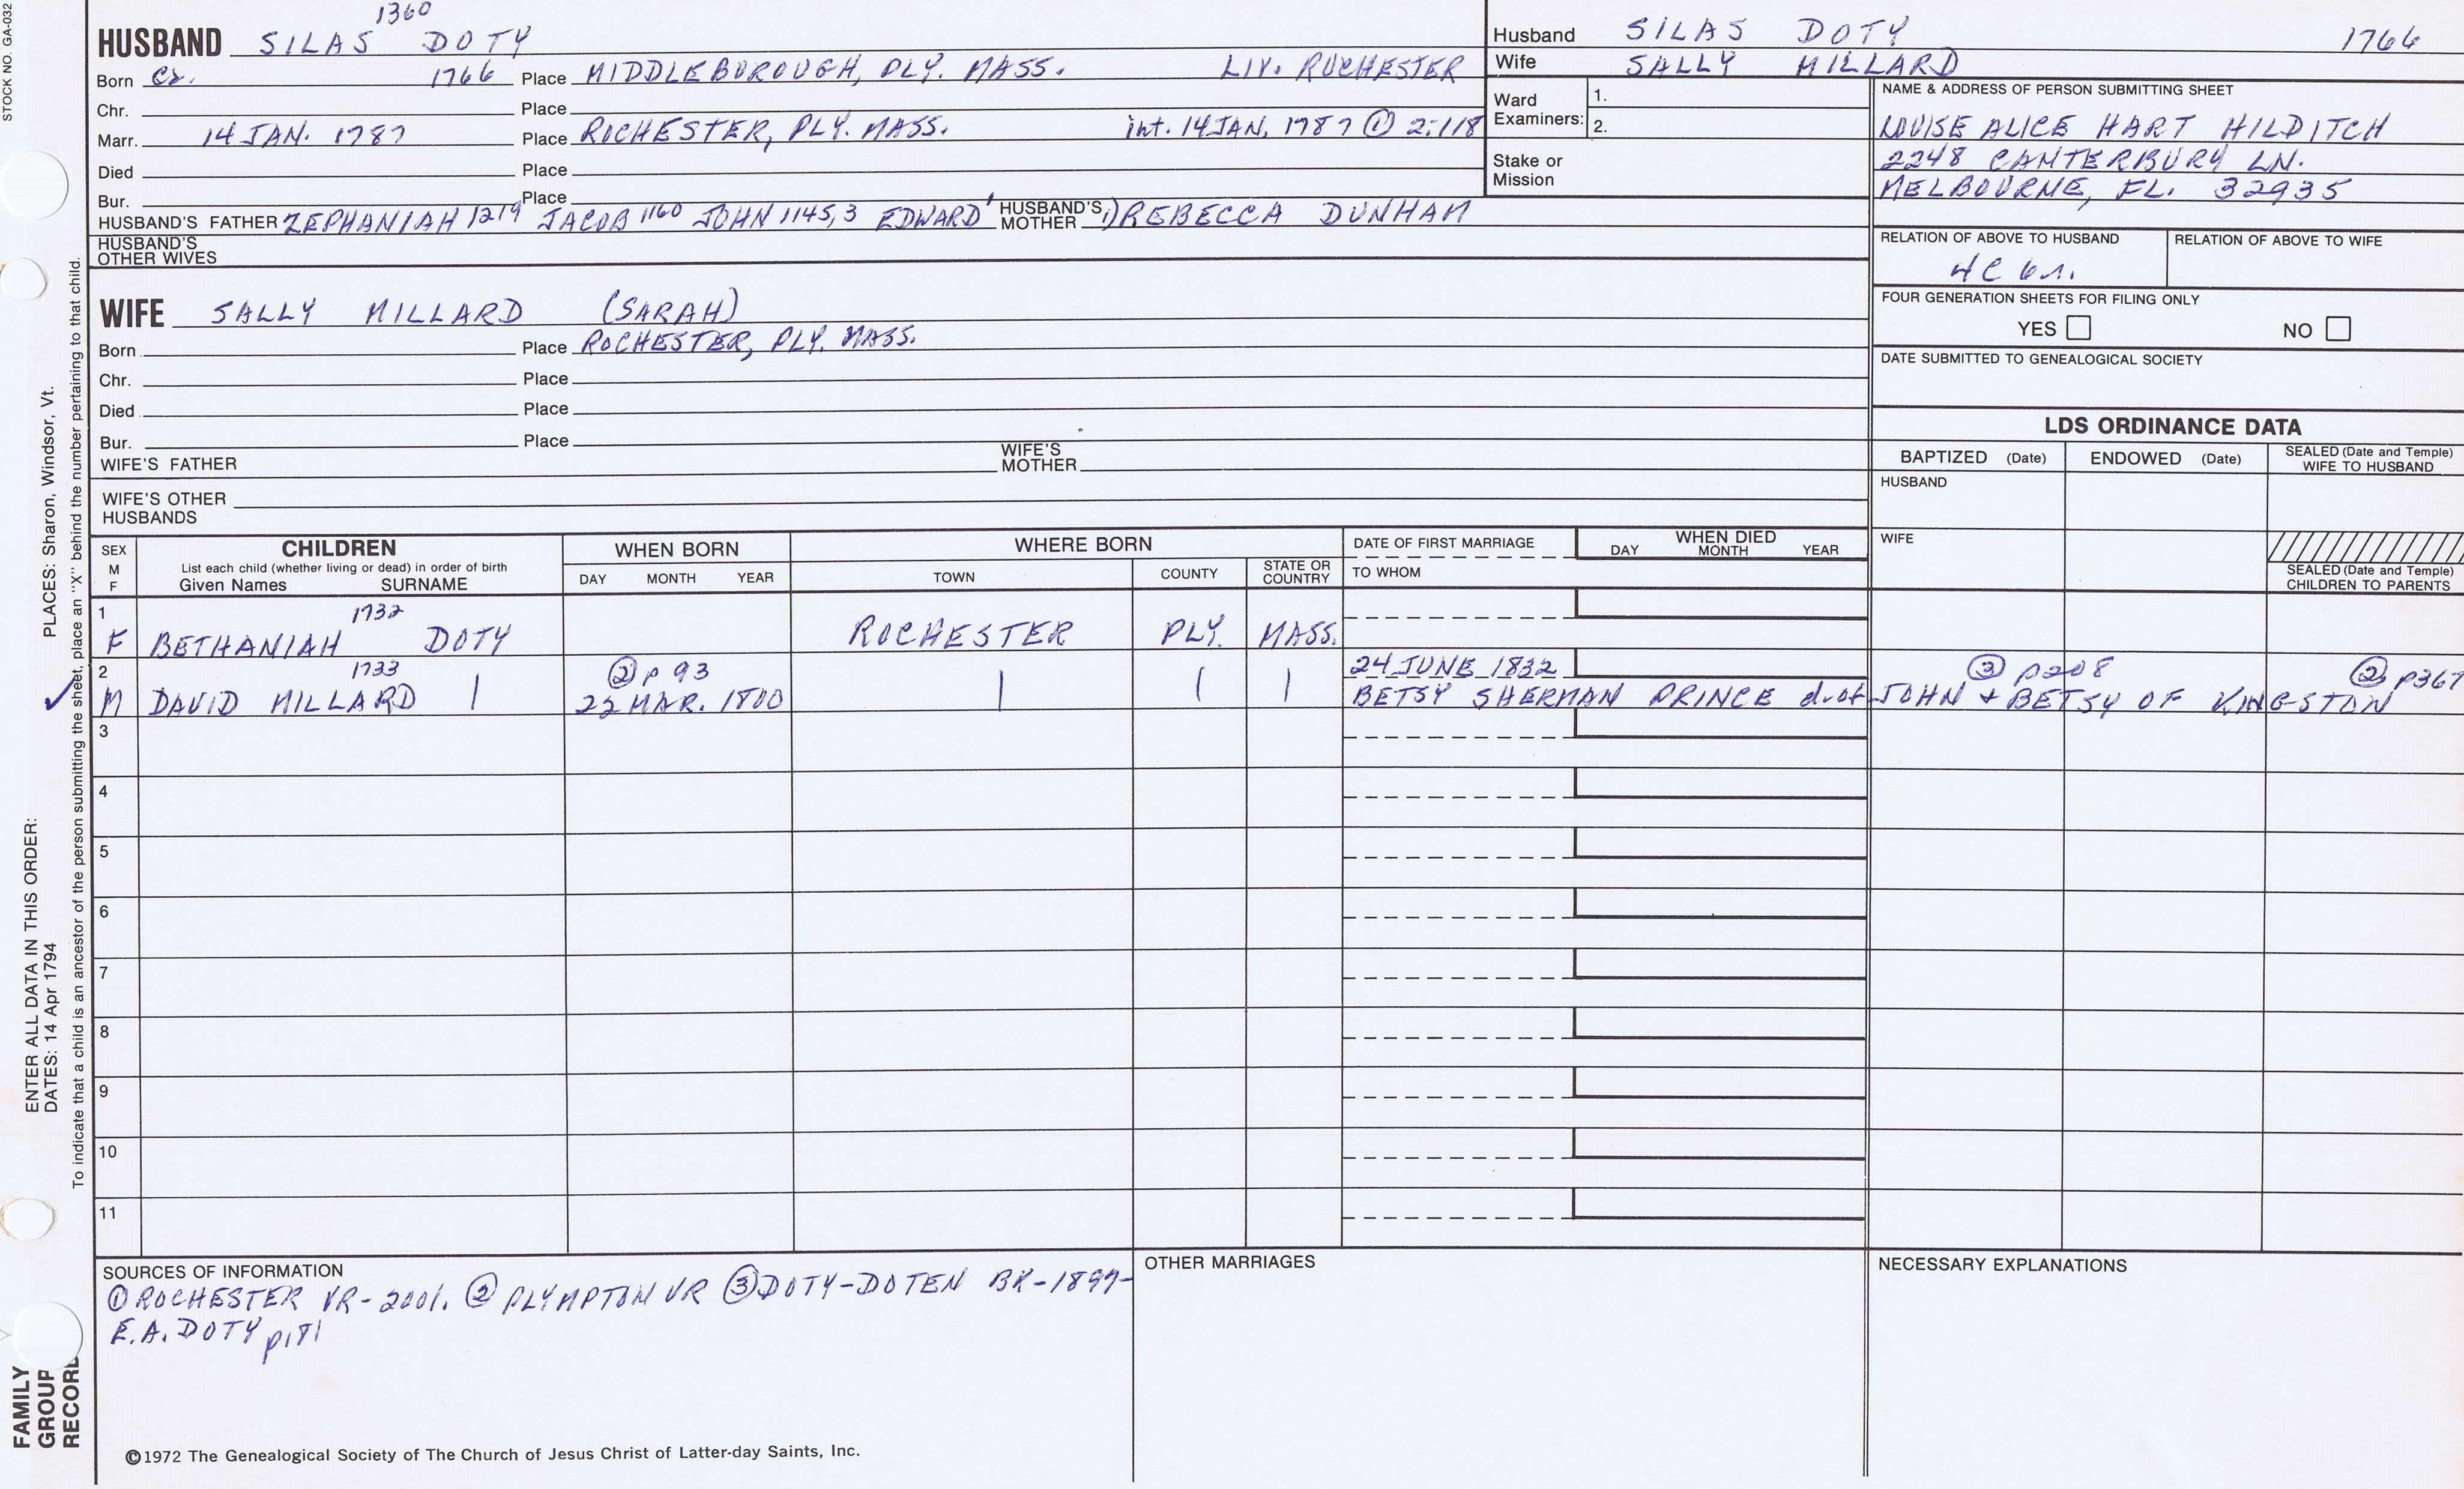 STOCK NO. GA-032
1360
HUSBAND SILAS DOTY
Born ca. 1766 Place MIDDLEBOROUGH, PLY. MASS. LIV. ROCHESTER
Chr. Place
Marr. 14 JAN. 1787 Place ROCHESTER, PLY. MASS. int. 14 JAN, 1787 ① 2:118
Died Place
Bur. Place
HUSBAND'S FATHER ZEPHANIAH 1219 JACOB 1160 JOHN 1145,3 EDWARD' HUSBAND'S MOTHER 1) REBECCA DUNHAM
HUSBAND'S OTHER WIVES
Husband SILAS DOTY 1766
Wife SALLY MILLARD
Ward Examiners: 1.
2.
Stake or Mission
NAME & ADDRESS OF PERSON SUBMITTING SHEET
LOUISE ALICE HART HILDITCH
2248 CANTERBURY LN.
MELBOURNE, FL. 32935
RELATION OF ABOVE TO HUSBAND RELATION OF ABOVE TO WIFE
4C 6r.
FOUR GENERATION SHEETS FOR FILING ONLY
YES NO
DATE SUBMITTED TO GENEALOGICAL SOCIETY
WIFE SALLY MILLARD (SARAH)
Born Place ROCHESTER, PLY. MASS.
Chr. Place
Died Place
Bur. Place
WIFE'S FATHER WIFE'S MOTHER
WIFE'S OTHER HUSBANDS
LDS ORDINANCE DATA
BAPTIZED (Date) ENDOWED (Date) SEALED (Date and Temple) WIFE TO HUSBAND
HUSBAND
WIFE
SEALED (Date and Temple) CHILDREN TO PARENTS
SEX M F
CHILDREN
List each child (whether living or dead) in order of birth
Given Names SURNAME
WHEN BORN
DAY MONTH YEAR
WHERE BORN
TOWN COUNTY STATE OR COUNTRY
DATE OF FIRST MARRIAGE
TO WHOM
WHEN DIED
DAY MONTH YEAR
1 1732
F BETHANIAH DOTY ROCHESTER PLY. MASS.
2 1733 ② p 93 24 JUNE 1832 ③ p208 ② p367
M DAVID MILLARD | 22 MAR. 1800 | | | BETSY SHERMAN PRINCE d. of JOHN + BETSY OF KINGSTON
3
4
5
6
7
8
9
10
11
SOURCES OF INFORMATION
① ROCHESTER VR-2001. ② PLYMPTON VR ③ DOTY-DOTEN BK-1897-
E.A. DOTY p181
OTHER MARRIAGES
NECESSARY EXPLANATIONS
©1972 The Genealogical Society of The Church of Jesus Christ of Latter-day Saints, Inc.
FAMILY GROUP RECORD
ENTER ALL DATA IN THIS ORDER:
DATES: 14 Apr 1794 PLACES: Sharon, Windsor, Vt.
To indicate that a child is an ancestor of the person submitting the sheet, place an "X" behind the number pertaining to that child.